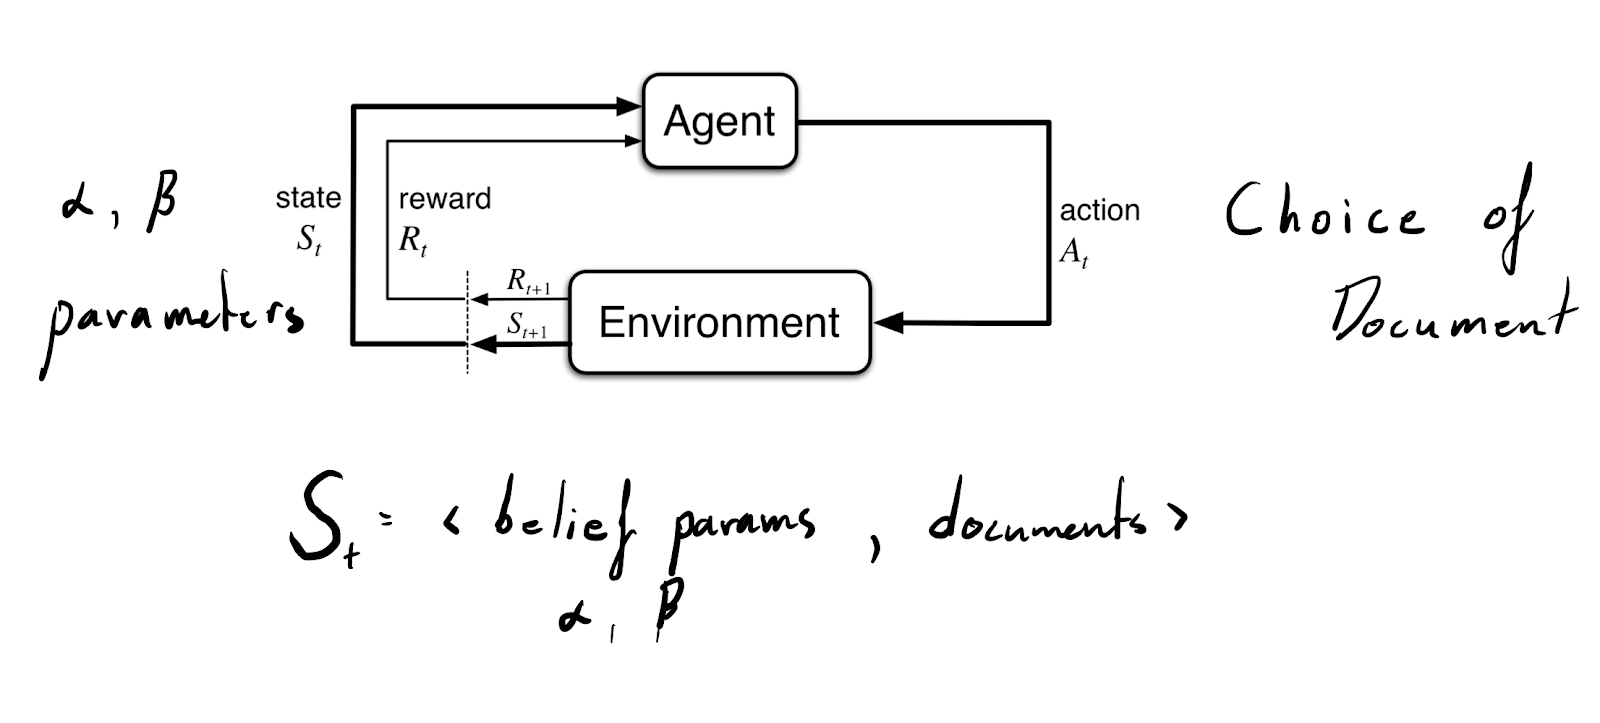 Agent
α, β
parameters
state
S_t
reward
R_t
action
A_t
Choice of
Document
R_{t+1}
S_{t+1}
Environment
S_t = < belief params , documents >
α, β